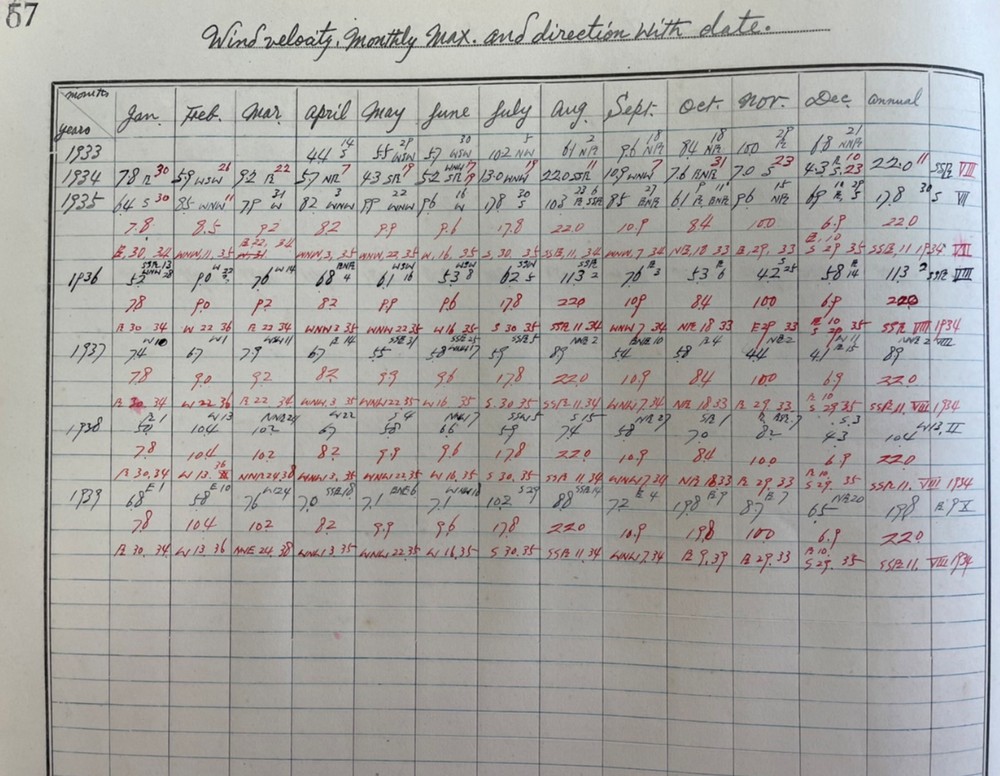 67
Wind velocity, Monthly Max. and direction with date.
months years Jan. Feb. Mar. April May June July Aug. Sept. Oct. Nov. Dec. annual
1933 44 S 14 55 WSW 29 57 WSW 30 102 NW 5 61 2 9.6 18 84 18 100 29 6.8 21
1934 78 E 30 59 WSW 26 92 E 22 57 NE 7 43 SE 19 52 13.0 WNW 19 220 SSE 11 10.9 WNW 7 7.6 ENE 31 7.0 S 23 4.3 E 10 S. 23 22.0 11 SSE VIII
1935 64 S 30 85 WNW 11 79 W 31 82 WNW 3 99 WNW 22 96 W 16 178 S 30 103 85 27 61 96 15 69 17.8 30 S VII
7.8 8.5 92 82 99 9.6 17.8 22.0 10.9 84 100 6.9 220
E. 30, 34 WNW, 11, 35 E. 22, 34 WNW 3, 35 WNW 22, 35 W, 16, 35 S, 30, 35 SSE, 11, 34 WNW, 7, 34 NE, 18, 33 E. 29, 33 E, 10 S 29 35 SSE, 11, 1934 VIII
1936 52 90 W 22 76 W 14 68 ENE 4 61 WSW 16 53 WSW 8 62 SSW 5 113 SSE 2 76 E 3 53 E 6 42 S 25 58 E 14 113 2 SSE VIII
78 90 92 82 99 96 178 220 109 84 100 69 220
E 30 34 W 22 36 E 22 34 WNW 3 35 WNW 22 35 W 16 35 S 30 35 SSE 11 34 WNW 7 34 NE 18 33 E 29 33 E 10 S 29 35 SSE VIII 1934
1937 74 W 10 67 W 1 79 WNW 11 67 E 14 55 SSE 31 58 59 SSE 5 89 NNE 2 54 ENE 10 58 E 4 44 NE 2 41 89 NNE 2 VIII
78 9.0 92 82 99 96 178 220 10.9 84 100 6.9 220
E 30, 34 W 22 36 E 22, 34 WNW, 3 35 WNW 22 35 W 16, 35 S. 30 35 SSE 11, 34 WNW 7, 34 NE 18 33 E 29 33 E 10 S 29 35 SSE 11, VIII 1934
1938 50 E 1 104 W 13 102 NNE 24 67 W 22 58 S 4 66 59 SSW 5 74 S 15 58 NE 27 70 SE 1 82 4.3 S. 3 104 W 13, II
78 104 102 82 99 96 178 220 10.9 84 100 6.9 220
E 30, 34 W 13. 36 NNE 24 38 WNW 3, 35 WNW 22 35 W 16, 35 S 30, 35 SSE 11 34 WNW 7, 34 NE 18 33 E 29, 33 E 10 S 29. 35 SSE 11, VIII 1934
1939 68 E 1 58 E 10 76 W 24 70 SSE 18 7.1 ENE 6 7.1 WNW 18 102 S 29 88 SSE 14 72 E 4 198 E 9 87 E 7 65 NE 20 198 E 9 X
78 104 102 82 9.9 9.6 178 220 10.9 198 100 6.9 220
E 30, 34 W 13. 36 NNE 24 38 WNW 3 35 WNW 22 35 W 16, 35 S 30. 35 SSE 11. 34 WNW 7, 34 E 9, 39 E 29. 33 E 10. S 29. 35 SSE 11, VIII 1934